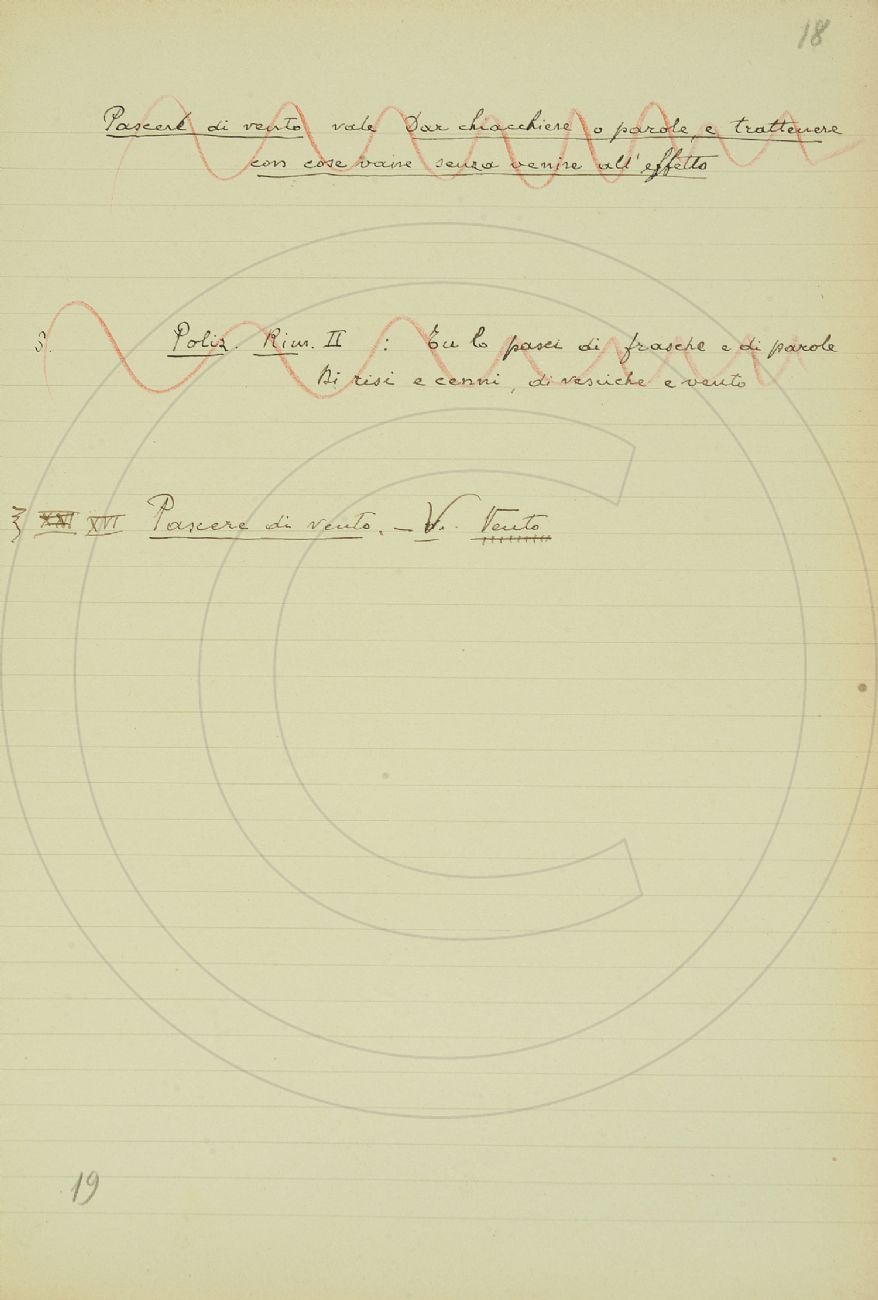 18
Pascere di vento vale Dar chiacchiere o parole, e trattenere
con cose vane senza venire all' effetto
S. Poliz. Rim. II : Tu lo pasci di frasche e di parole
Di risi e cenni, di vesciche e vento
§ XXI XVI Pascere di vento. — V. Vento
19